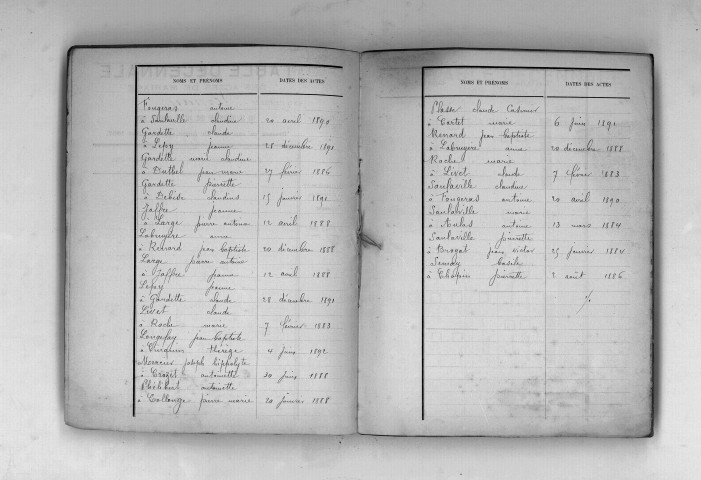 NOMS ET PRÉNOMS DATES DES ACTES
Fougeras antoine
à Saulaville claudine 20 avril 1890
Gardette claude
à Lepay jeanne 28 décembre 1891
Gardette marie claudine
à jean marie 27 février 1886
Gardette pierrette
à Debise claudius 15 janvier 1891
Jaffre jeanne
à Large pierre antoine 12 avril 1888
Labruyère anne
à Renard jean baptiste 20 décembre 1888
Large pierre antoine
à Jaffre jeanne 12 avril 1888
Lepay jeanne
à Gardette claude 28 décembre 1891
Livet claude
à Roche marie 7 février 1883
Longefay jean baptiste
à thérèse 4 juin 1892
Mercier joseph hippolyte
à Crozet antoinette 30 juin 1888
Philibert antoinette
à Collonge pierre marie 20 janvier 1888
NOMS ET PRÉNOMS DATES DES ACTES
Plasse claude Casimir
à Cortet marie 6 juin 1891
Renard jean baptiste
à Labruyère anne 20 décembre 1888
Roche marie
à Livet claude 7 février 1883
Saulaville claudine
à Fougeras antoine 20 avril 1890
Saulaville marie
à Aulas antoine 13 mars 1884
Saulaville pierrette
à Brogat jean victor 25 janvier 1884
Basile
à Chopin pierrette 2 août 1886